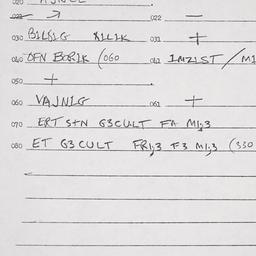 020
021 → 022 —
030 BILBIG KILIK 031 +
040 OFN BORIK (060 041 IMZIST / M1
050 +
060 VAJNIG 061 +
070 ERT S+N G3CULT FA M1;3
080 ET G3 CULT FR1,3 F3 M1,3 (330